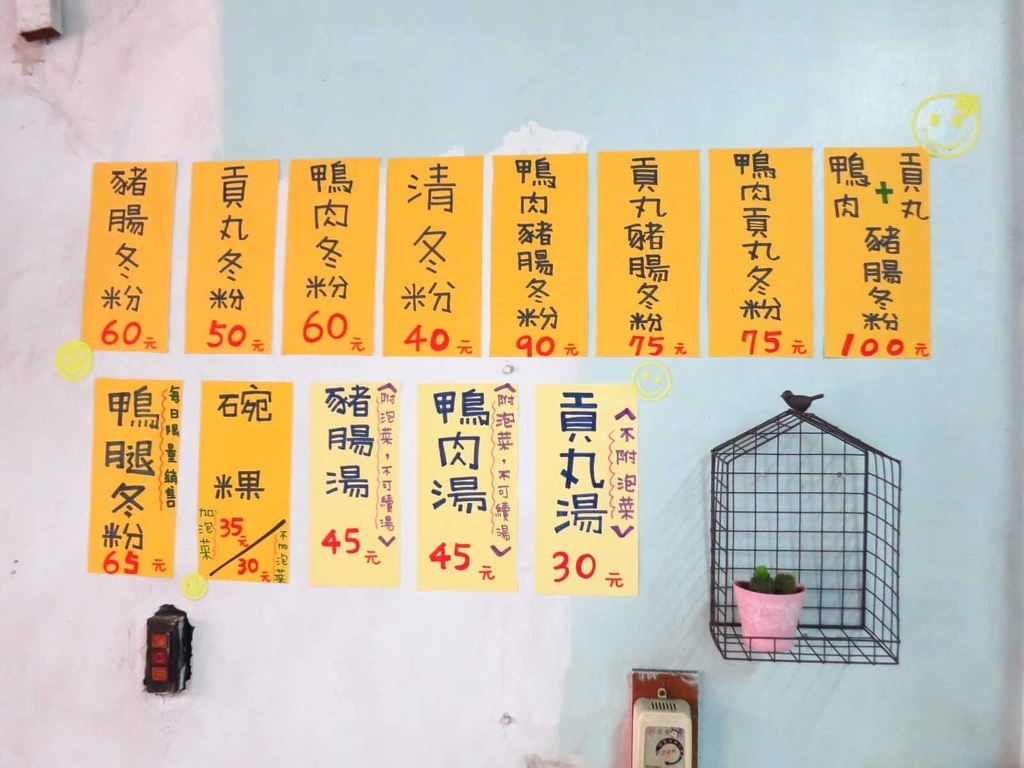 豬腸冬粉
60元
貢丸冬粉
50元
鴨肉冬粉
60元
清冬粉
40元
鴨肉豬腸冬粉
90元
貢丸豬腸冬粉
75元
鴨肉貢丸冬粉
75元
鴨肉+貢丸
豬腸冬粉
100元
鴨腿冬粉
每日限量銷售
65元
碗粿
加泡菜
35元
不加泡菜
30元
豬腸湯
<附泡菜,不可續湯>
45元
鴨肉湯
<附泡菜,不可續湯>
45元
貢丸湯
<不附泡菜>
30元